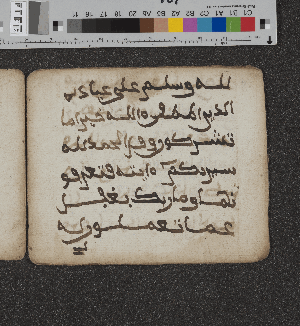 لله وسلم على عباده
الذين اصطفى الله خير اما
تشركون وقل الحمد لله
سيريكم ءايته فتعرفو
نها وما ربك بغفل
عما تعملون